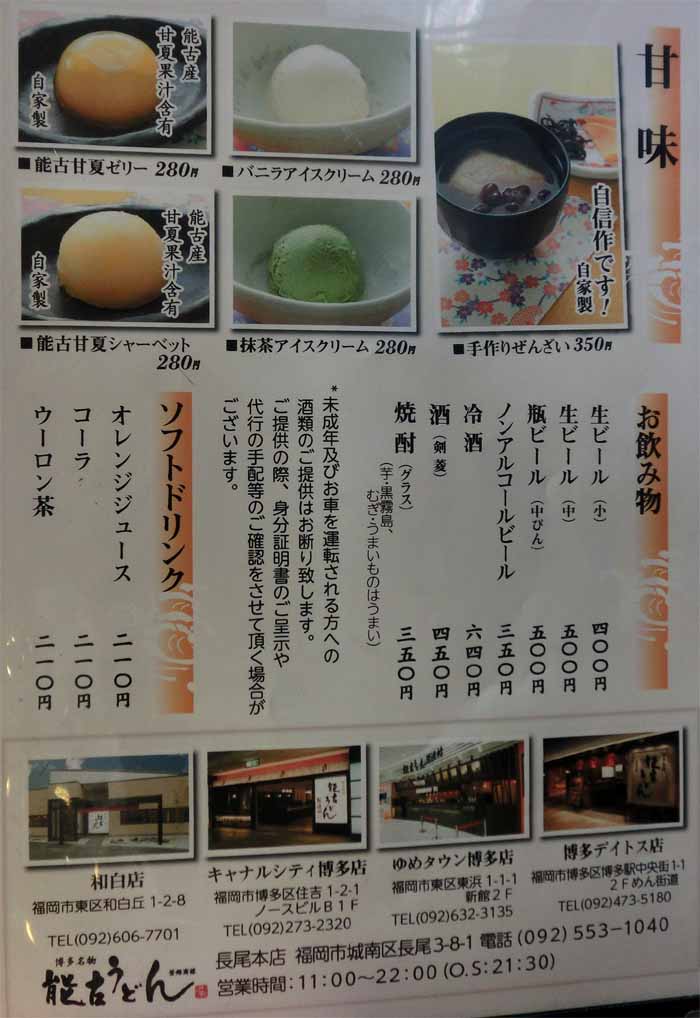 甘味
能古産
甘夏果汁含有
自家製
■能古甘夏ゼリー 280円
■バニラアイスクリーム 280円
自信作です！
自家製
■手作りぜんざい 350円
能古産
甘夏果汁含有
自家製
■能古甘夏シャーベット
280円
■抹茶アイスクリーム 280円
お飲み物
生ビール（小） 四〇〇円
生ビール（中） 五〇〇円
瓶ビール（中びん） 五〇〇円
ノンアルコールビール 三五〇円
冷酒 六四〇円
酒（剣菱） 四五〇円
焼酎（グラス） 三五〇円
（芋・黒霧島、
むぎ・うまいものはうまい）
*未成年及びお車を運転される方への
酒類のご提供はお断り致します。
ご提供の際、身分証明書のご呈示や
代行の手配等のご確認をさせて頂く場合が
ございます。
ソフトドリンク
オレンジジュース 二一〇円
コーラ 二一〇円
ウーロン茶 二一〇円
和白店
福岡市東区和白丘1-2-8
TEL(092)606-7701
キャナルシティ博多店
福岡市博多区住吉1-2-1
ノースビルB1F
TEL(092)273-2320
ゆめタウン博多店
福岡市東区東浜1-1-1
新館2F
TEL(092)632-3135
博多デイトス店
福岡市博多区博多駅中央街1-1
2Fめん街道
TEL(092)473-5180
博多名物
能古うどん
長尾本店 福岡市城南区長尾3-8-1 電話(092)553-1040
営業時間：11:00～22:00(O.S:21:30)